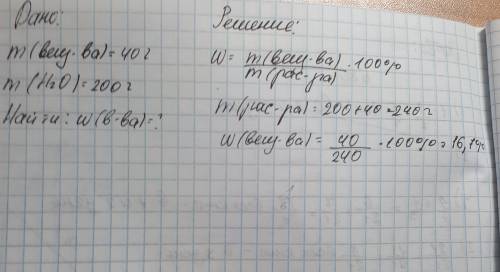 Дано:
m(вещ-ва)=40г
m(H₂O)=200г
Найти: ω(в-ва)=?
Решение:
ω= m(вещ-ва)/m(рас-ра) · 100%
m(рас-ра)=200+40=240г
ω(вещ-ва)= 40/240 · 100%=16,7%